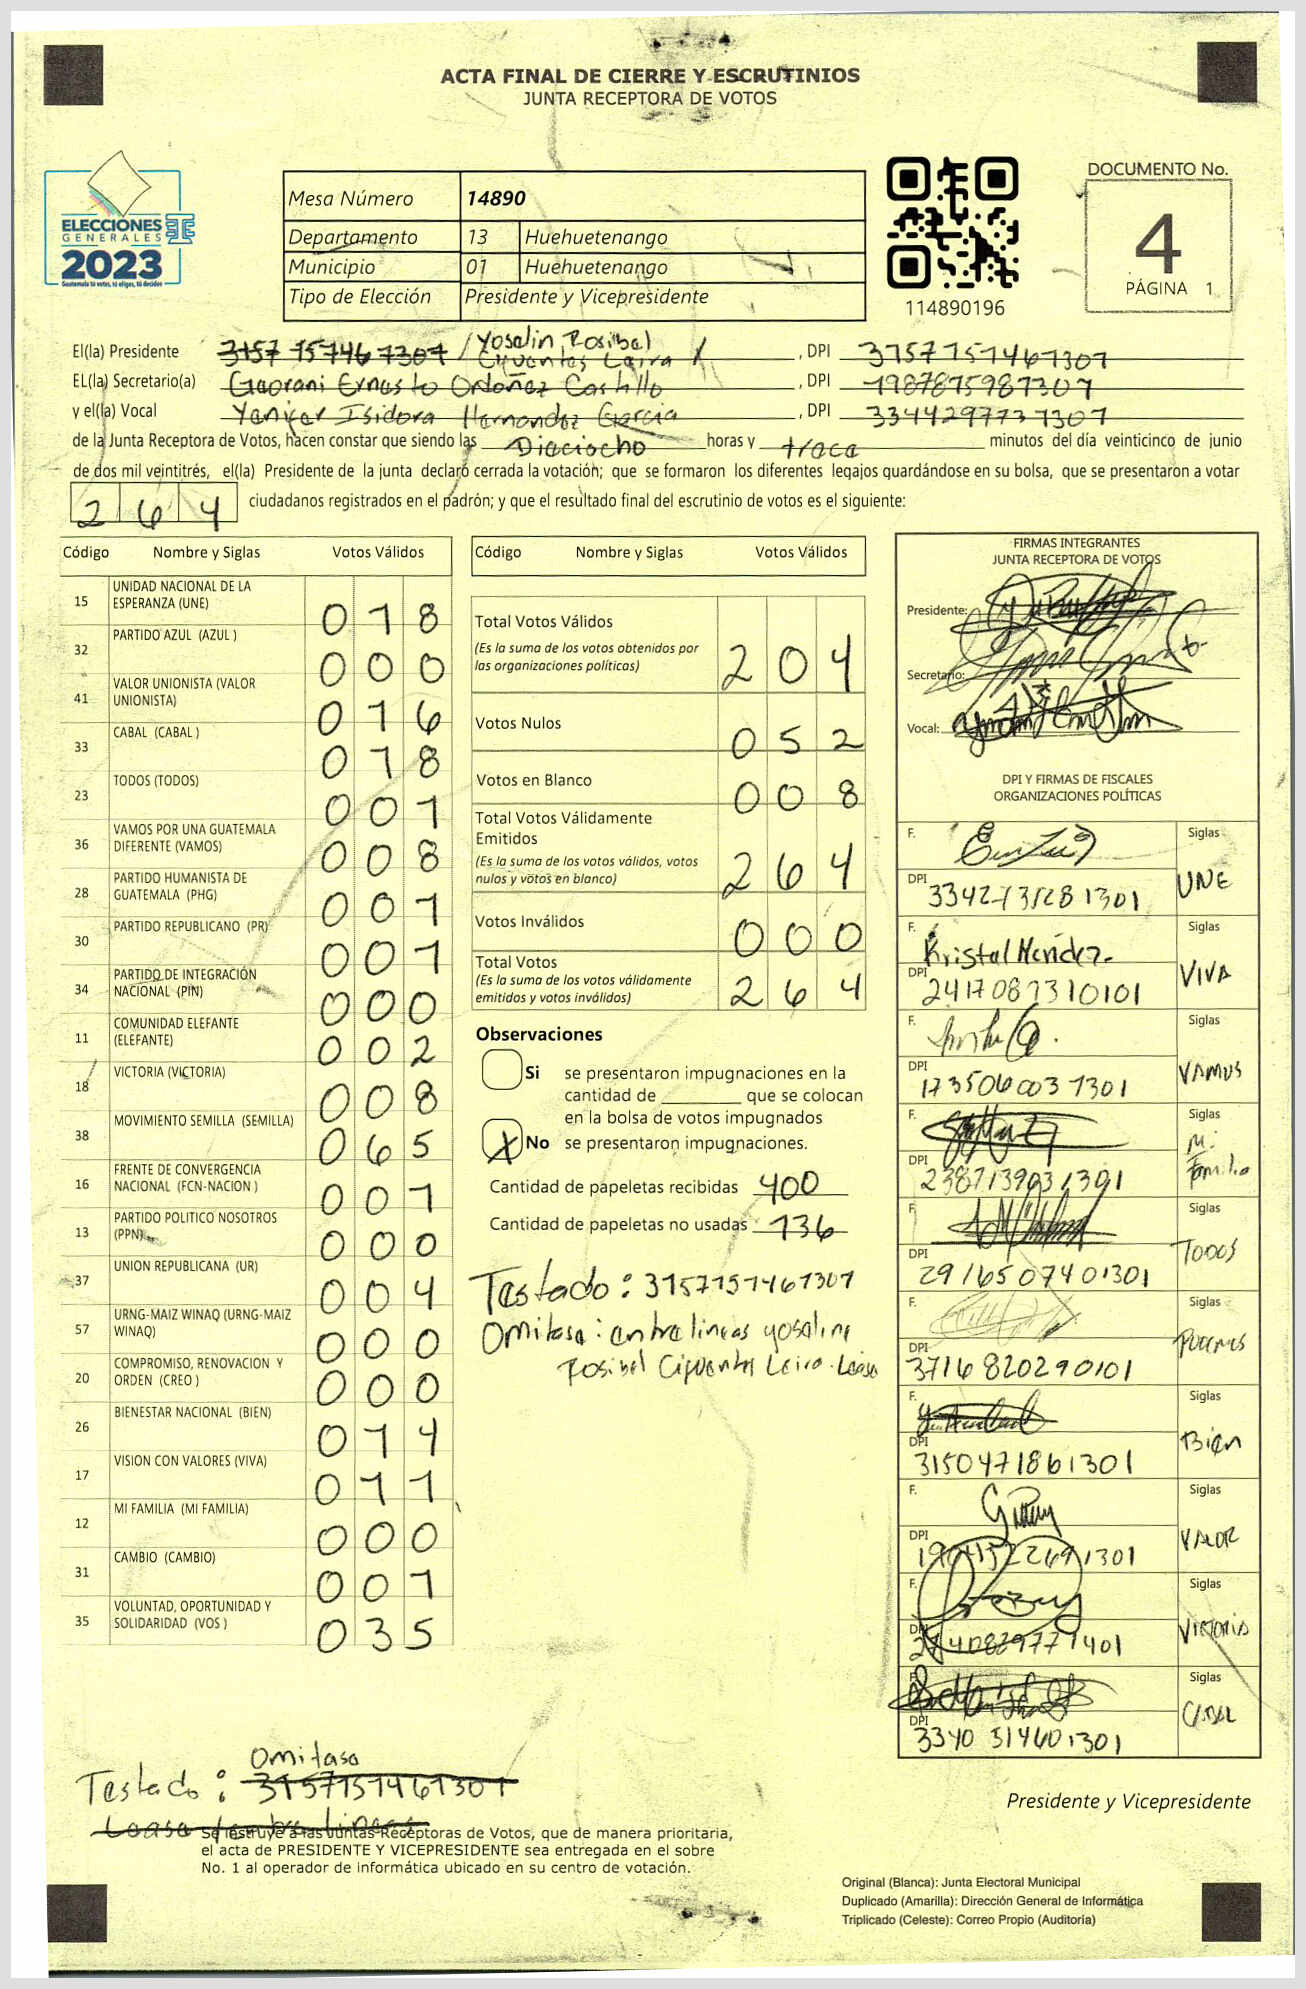 ACTA FINAL DE CIERRE Y ESCRUTINIOS
JUNTA RECEPTORA DE VOTOS
ELECCIONES
GENERALES
2023
Guatemala tú votas, tú eliges, tú decides
Mesa Número 14890
Departamento 13 Huehuetenango
Municipio 01 Huehuetenango
Tipo de Elección Presidente y Vicepresidente
114890196
DOCUMENTO No.
4
PÁGINA 1
El(la) Presidente 3157 15746 7307 / Yosalin Rosibel Cifuentes Leiva , DPI 3157151467307
EL(la) Secretario(a) Geovani Ernesto Ordoñez Castillo , DPI 1987875987307
y el(la) Vocal Yenifer Isidora Hernandez Garcia , DPI 3344297737307
de la Junta Receptora de Votos, hacen constar que siendo las Dieciocho horas y trece minutos del día veinticinco de junio
de dos mil veintitrés, el(la) Presidente de la junta declaró cerrada la votación; que se formaron los diferentes legajos guardándose en su bolsa, que se presentaron a votar
264 ciudadanos registrados en el padrón; y que el resultado final del escrutinio de votos es el siguiente:
Código Nombre y Siglas Votos Válidos
15 UNIDAD NACIONAL DE LA ESPERANZA (UNE) 018
32 PARTIDO AZUL (AZUL ) 000
41 VALOR UNIONISTA (VALOR UNIONISTA) 016
33 CABAL (CABAL ) 018
23 TODOS (TODOS) 001
36 VAMOS POR UNA GUATEMALA DIFERENTE (VAMOS) 008
28 PARTIDO HUMANISTA DE GUATEMALA (PHG) 001
30 PARTIDO REPUBLICANO (PR) 001
34 PARTIDO DE INTEGRACIÓN NACIONAL (PIN) 000
11 COMUNIDAD ELEFANTE (ELEFANTE) 002
18 VICTORIA (VICTORIA) 008
38 MOVIMIENTO SEMILLA (SEMILLA) 065
16 FRENTE DE CONVERGENCIA NACIONAL (FCN-NACION ) 001
13 PARTIDO POLITICO NOSOTROS (PPN) 000
37 UNION REPUBLICANA (UR) 004
57 URNG-MAIZ WINAQ (URNG-MAIZ WINAQ) 000
20 COMPROMISO, RENOVACION Y ORDEN (CREO ) 000
26 BIENESTAR NACIONAL (BIEN) 014
17 VISION CON VALORES (VIVA) 011
12 MI FAMILIA (MI FAMILIA) 000
31 CAMBIO (CAMBIO) 001
35 VOLUNTAD, OPORTUNIDAD Y SOLIDARIDAD (VOS ) 035
Código Nombre y Siglas Votos Válidos
Total Votos Válidos 204
(Es la suma de los votos obtenidos por
las organizaciones políticas)
Votos Nulos 052
Votos en Blanco 008
Total Votos Válidamente
Emitidos 264
(Es la suma de los votos válidos, votos
nulos y votos en blanco)
Votos Inválidos 000
Total Votos 264
(Es la suma de los votos válidamente
emitidos y votos inválidos)
Observaciones
Si se presentaron impugnaciones en la
cantidad de ________ que se colocan
en la bolsa de votos impugnados
X No se presentaron impugnaciones.
Cantidad de papeletas recibidas 400
Cantidad de papeletas no usadas 136
Testado: 3157151467307
Omitase: entre lineas yosaline
Rosibel Cifuentes Leiva. Lease
FIRMAS INTEGRANTES
JUNTA RECEPTORA DE VOTOS
Presidente:
Secretario:
Vocal:
DPI Y FIRMAS DE FISCALES
ORGANIZACIONES POLÍTICAS
F. Siglas
DPI 3342731281301 UNE
F. Kristal Mendez Siglas
DPI 2417087310101 VIVA
F. Siglas
DPI 1735060031301 VAMOS
F. Siglas
DPI 2387139031301 Mi Familia
F. Siglas
DPI 2916507401301 TODOS
F. Siglas
DPI 3716820290101 PODEMOS
F. Siglas
DPI 3150471861301 Bien
F. Siglas
DPI 19041522691301 VALOR
F. Siglas
DPI 2740829771401 Victoria
F. Siglas
DPI 3340314601301 CABAL
Omitase
Testado: 3157151467301
Lease entre lineas
Se instruye a las Juntas Receptoras de Votos, que de manera prioritaria,
el acta de PRESIDENTE Y VICEPRESIDENTE sea entregada en el sobre
No. 1 al operador de informática ubicado en su centro de votación.
Presidente y Vicepresidente
Original (Blanca): Junta Electoral Municipal
Duplicado (Amarilla): Dirección General de Informática
Triplicado (Celeste): Correo Propio (Auditoría)